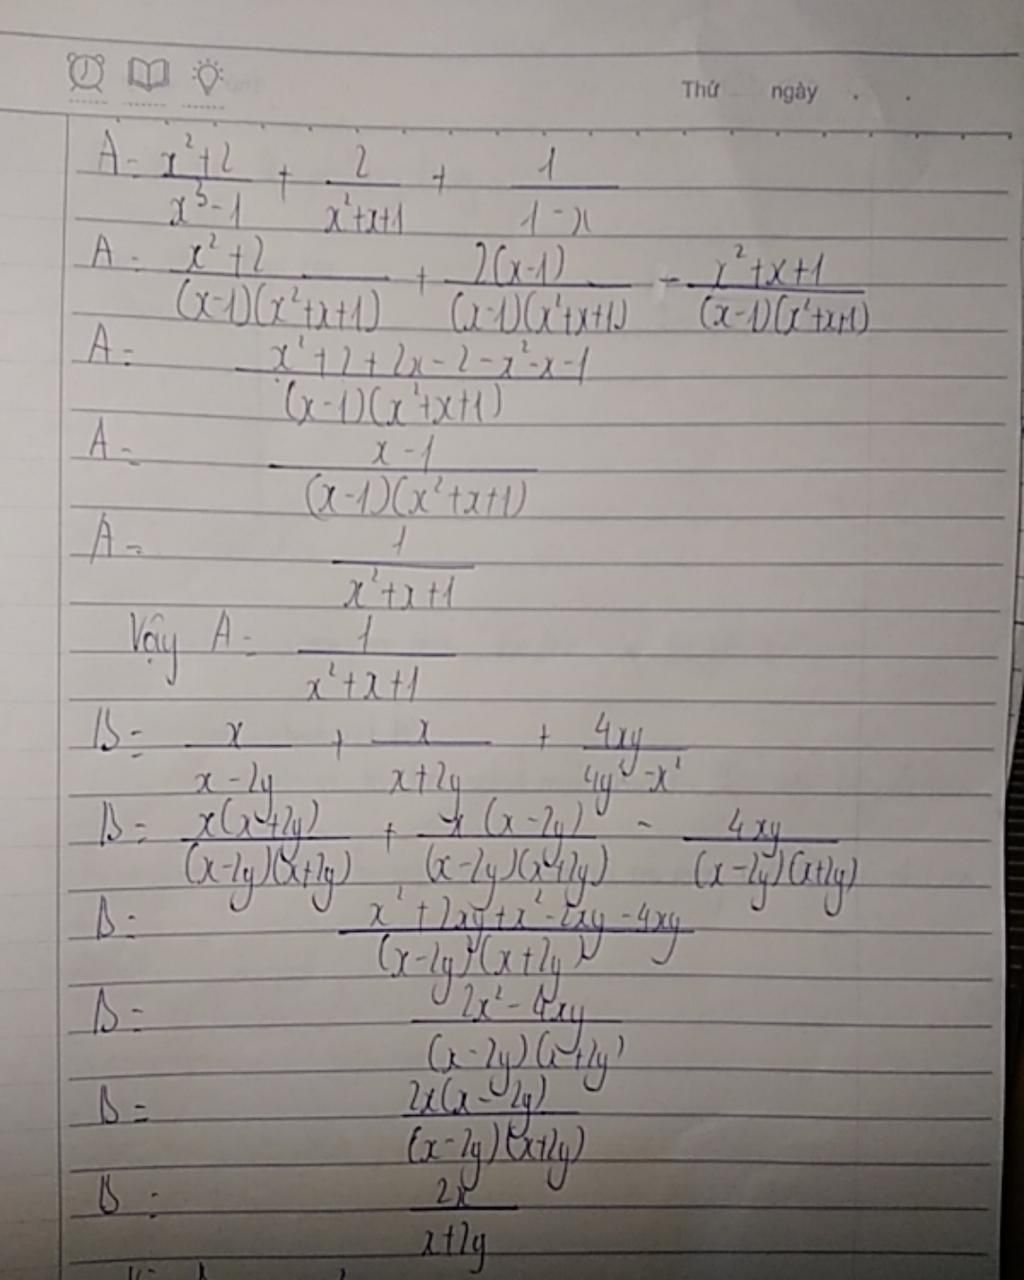 Thứ ngày . .
A = \frac{x^2+2}{x^3-1} + \frac{2}{x^2+x+1} + \frac{1}{1-x}
A = \frac{x^2+2}{(x-1)(x^2+x+1)} + \frac{2(x-1)}{(x-1)(x^2+x+1)} - \frac{x^2+x+1}{(x-1)(x^2+x+1)}
A = \frac{x^2+2+2x-2-x^2-x-1}{(x-1)(x^2+x+1)}
A = \frac{x-1}{(x-1)(x^2+x+1)}
A = \frac{1}{x^2+x+1}
Vậy A = \frac{1}{x^2+x+1}
B = \frac{x}{x-2y} + \frac{x}{x+2y} + \frac{4xy}{4y^2-x^2}
B = \frac{x(x+2y)}{(x-2y)(x+2y)} + \frac{x(x-2y)}{(x-2y)(x+2y)} - \frac{4xy}{(x-2y)(x+2y)}
B = \frac{x^2+2xy+x^2-2xy-4xy}{(x-2y)(x+2y)}
B = \frac{2x^2-4xy}{(x-2y)(x+2y)}
B = \frac{2x(x-2y)}{(x-2y)(x+2y)}
B = \frac{2x}{x+2y}